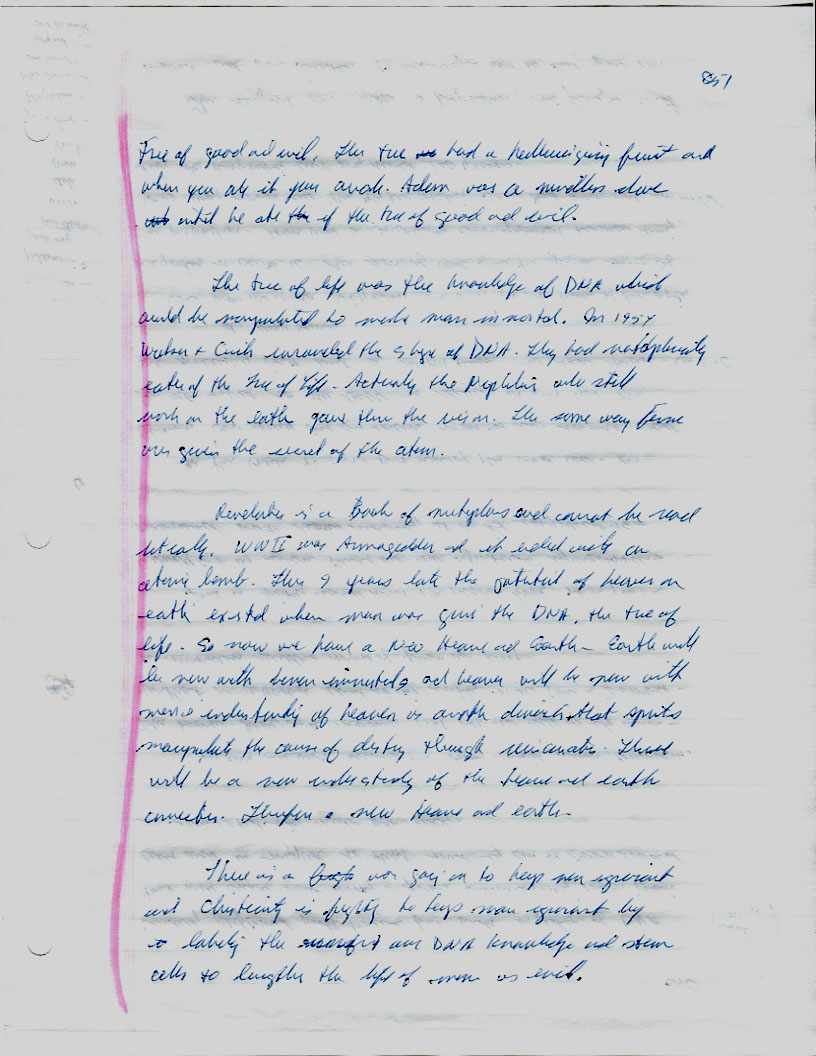 851
Tree of good ad evil. The tree had a hallucinizing fruit and
when you ate it you awoke. Adam was a mindless slave
until he ate of the tree of good ad evil.
The tree of life was the knowledge of DNA which
could be manipulated to make man immortal. In 195
Watson + Crick unraveled the shape of DNA. They had metaphorically
eaten of the Tree of Life. Actually the Nephilim who still
work on the earth gave them the vision. The same way Fermi
was given the secret of the atom.
Revelation is a Book of metaphors and cannot be read
literally. WWII was Armageddon ad it ended with an
atomic bomb. Then 9 years late the potential of heaven on
earth existed when man was given the DNA, the tree of
life. So now we have a New Heaven ad Earth - Earth will
be new with human immortals ad heaven will be new with
man's understanding of heaven is another dimension that spirits
manipulate the course of destiny through reincarnation. There
will be a new understanding of the heaven ad earth
connection. Therefore a new Heaven ad earth.
There is a war going on to keep man ignorant
and Christianity is fighting to keep man ignorant by
labeling the our DNA knowledge ad stem
cells to lengthen the life of man as evil.